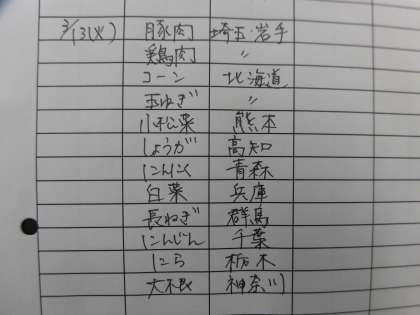 3/13(火) 豚肉 埼玉・岩手
鶏肉 〃
コーン 北海道
玉ねぎ 〃
小松菜 熊本
しょうが 高知
にんにく 青森
白菜 兵庫
長ねぎ 群馬
にんじん 千葉
にら 栃木
大根 神奈川